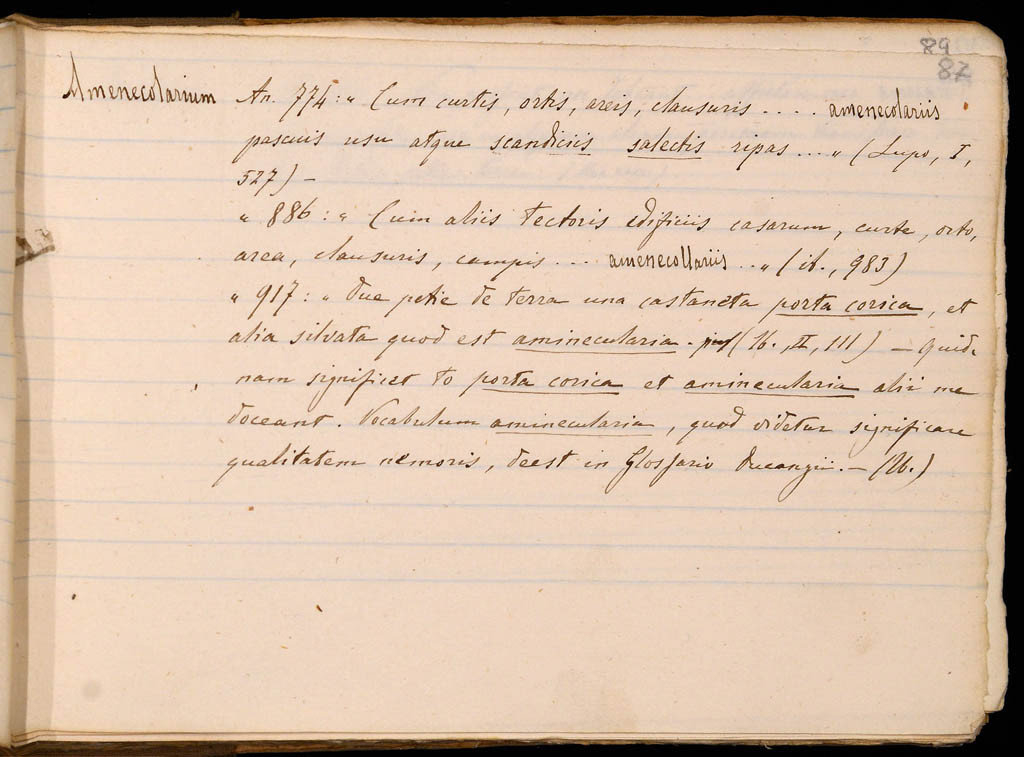 89
87
Amenecolarium An. 774: " Cum curtis, ortis, areis, clausuris .... amenecolariis
pascuis usu atque scandiciis salectis ripas ... " (Lupo, I,
527) —
" 886: " Cum aliis tectoris edificiis casarum, curte, orto,
area, clausuris, campis ... amenecollariis .. " (ib., 983)
" 917: " Due petie de terra una castaneta porta corica, et
alia silvata quod est aminecularia. (Ib., II, 111) — Quid-
nam significet to porta corica et aminecularia alii me
doceant. Vocabulum aminecularia, quod videtur significare
qualitatem nemoris, deest in Glossario Ducangii. — (Ib.)